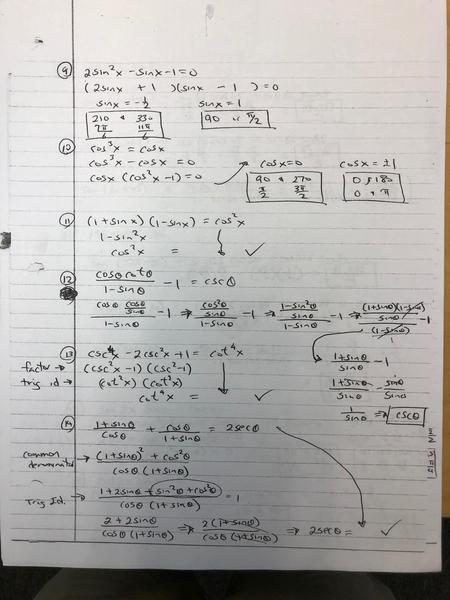 9) 2sin²x - sinx - 1 = 0
(2sinx + 1)(sinx - 1) = 0
sinx = -1/2    sinx = 1
210 & 330    90 or π/2
7π/6    11π/6
10) cos³x = cosx
cos³x - cosx = 0    cosx = 0    cosx = ±1
cosx (cos²x - 1) = 0 → 90 & 270    0 & 180
π/2    3π/2    0 & π
11) (1+sinx)(1-sinx) = cos²x
1 - sin²x
cos²x = ✓
12) cosθ cotθ / 1-sinθ - 1 = cscθ
cosθ cosθ/sinθ / 1-sinθ - 1 ⇒ cos²θ/sinθ / 1-sinθ - 1 ⇒ 1-sin²θ/sinθ / 1-sinθ - 1 ⇒ (1+sinθ)(1-sinθ)/sinθ / (1-sinθ)/1 - 1
1+sinθ / sinθ - 1
1+sinθ / sinθ - sinθ / sinθ
1 / sinθ ⇒ cscθ
13) csc⁴x - 2csc²x + 1 = cot⁴x
factor → (csc²x - 1)(csc²-1)
trig id → (cot²x)(cot²x)
cot⁴x = ✓
14) 1+sinθ / cosθ + cosθ / 1+sinθ = 2secθ
common denominator → (1+sinθ)² + cos²θ / cosθ (1+sinθ)
Trig Id. → 1+2sinθ + sin²θ + cos²θ / cosθ (1+sinθ) = 1
2+2sinθ / cosθ (1+sinθ) ⇒ 2(1+sinθ) / cosθ (1+sinθ) ⇒ 2secθ = ✓